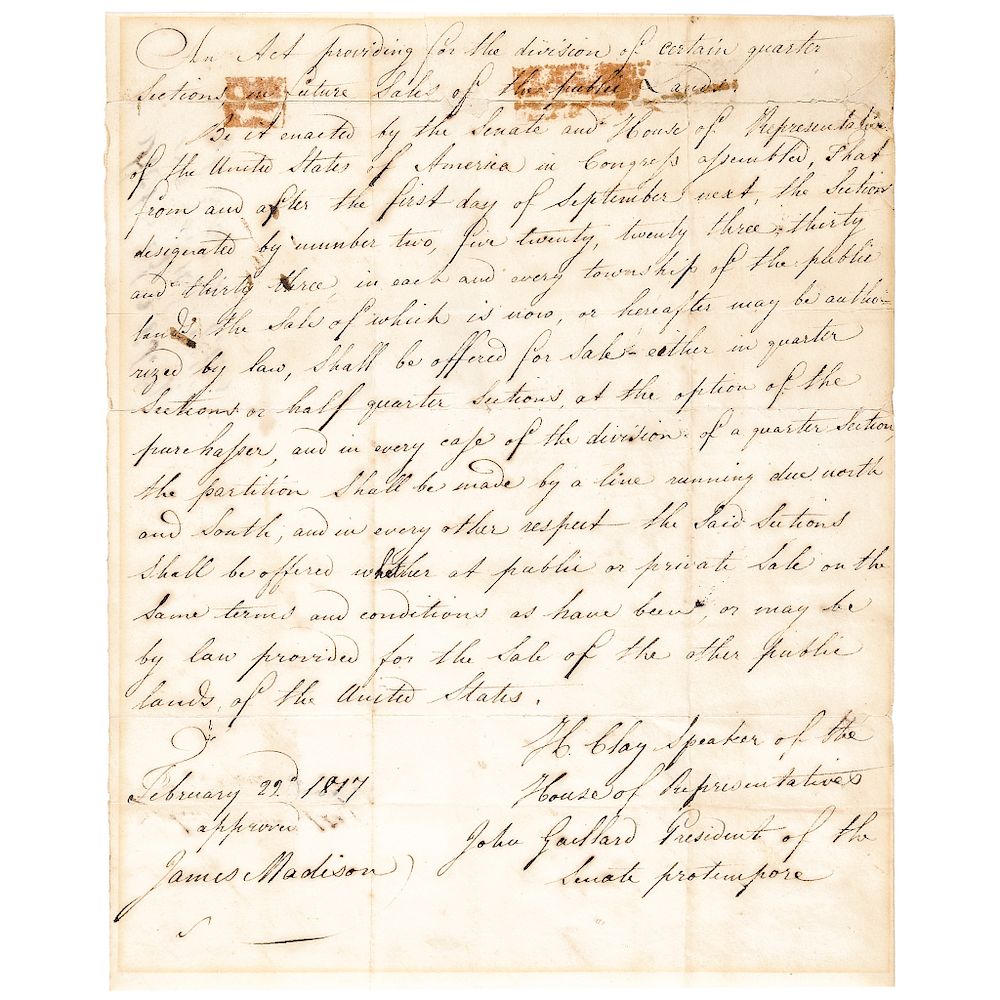 An Act providing for the division of certain quarter
Sections in future Sales of the public Lands.
Be it enacted by the Senate and House of Representatives
of the United States of America in Congress assembled, That
from and after the first day of September next, the Sections
designated by number two, five twenty, twenty three, thirty
and thirty three, in each and every township of the public
lands, the Sale of which is now, or hereafter may be autho-
rized by law, Shall be offered for Sale either in quarter
Sections or half quarter Sections, at the option of the
purchasser, and in every case of the division of a quarter Section,
the partition Shall be made by a line running due north
and South, and in every other respect the Said Sections
Shall be offered whether at public or private Sale on the
Same terms and conditions as have been, or may be
by law provided for the Sale of the other public
lands, of the United States.
H. Clay Speaker of the
House of Representatives
John Gaillard President of the
Senate protempore
February 22d 1817
approved
James Madison